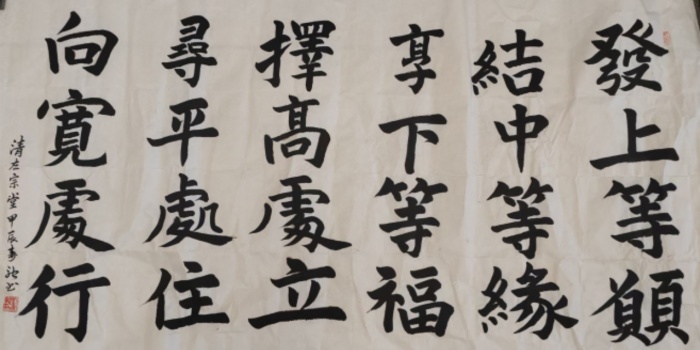 發上等願
結中等緣
享下等福
擇高處立
尋平處住
向寬處行
清左宗棠甲辰春书